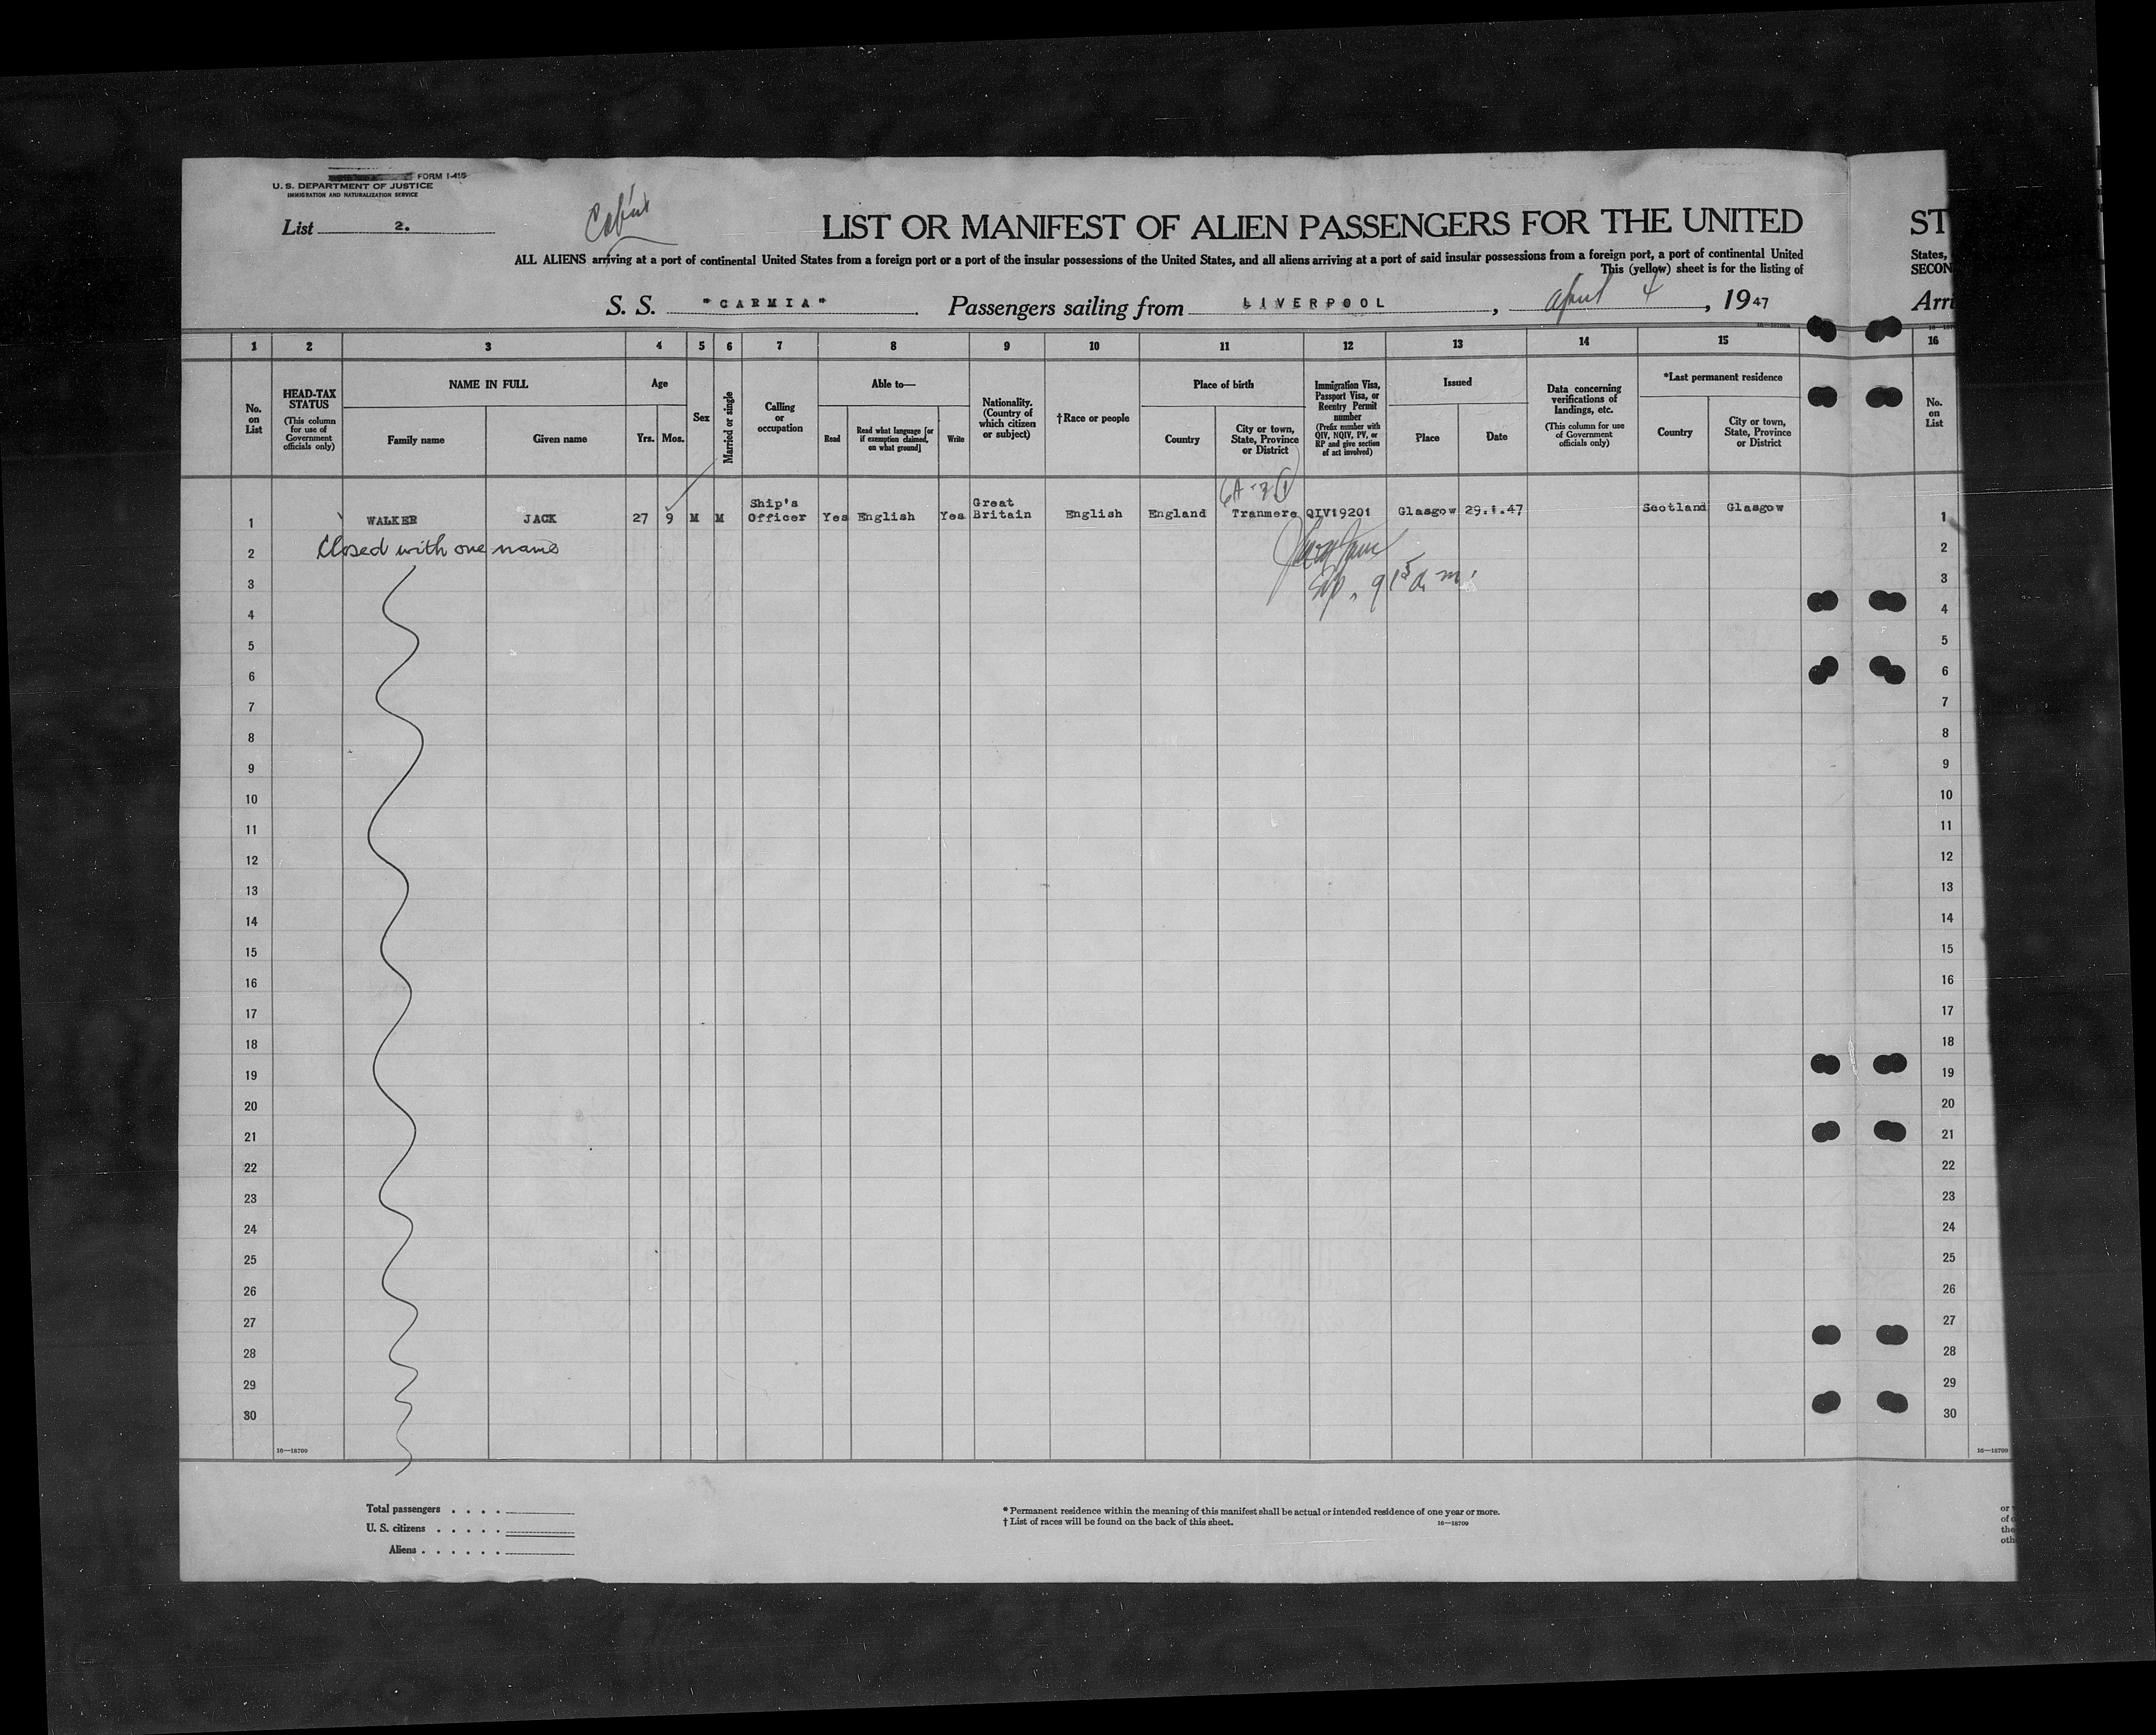 FORM I-415
U. S. DEPARTMENT OF JUSTICE
IMMIGRATION AND NATURALIZATION SERVICE
List 2.
Cabin
LIST OR MANIFEST OF ALIEN PASSENGERS FOR THE UNITED
ST
ALL ALIENS arriving at a port of continental United States from a foreign port or a port of the insular possessions of the United States, and all aliens arriving at a port of said insular possessions from a foreign port, a port of continental United
States,
This (yellow) sheet is for the listing of
SECON
S. S. "CARMIA" Passengers sailing from LIVERPOOL, April 4, 1947
Arri
16—18709A
1 2 3 4 5 6 7 8 9 10 11 12 13 14 15 16
No. on List
HEAD-TAX STATUS
(This column for use of Government officials only)
NAME IN FULL
Family name
Given name
Age
Yrs.
Mos.
Sex
Married or single
Calling or occupation
Able to—
Read
Read what language [or if exemption claimed, on what ground]
Write
Nationality. (Country of which citizen or subject)
†Race or people
Place of birth
Country
City or town, State, Province or District
Immigration Visa, Passport Visa, or Reentry Permit number
(Prefix number with QIV, NQIV, PV, or RP and give section of act involved)
Issued
Place
Date
Data concerning verifications of landings, etc.
(This column for use of Government officials only)
*Last permanent residence
Country
City or town, State, Province or District
No. on List
1 WALKER JACK 27 9 M M Ship's Officer Yes English Yes Great Britain English England Tranmere QIV19201 Glasgow 29.1.47 Scotland Glasgow 1
2 Closed with one name 2
3 3
4 4
5 5
6 6
7 7
8 8
9 9
10 10
11 11
12 12
13 13
14 14
15 15
16 16
17 17
18 18
19 19
20 20
21 21
22 22
23 23
24 24
25 25
26 26
27 27
28 28
29 29
30 30
16—18709
16—18709
Total passengers . . . .
U. S. citizens . . . . .
Aliens . . . . . .
* Permanent residence within the meaning of this manifest shall be actual or intended residence of one year or more.
† List of races will be found on the back of this sheet.
16—18709